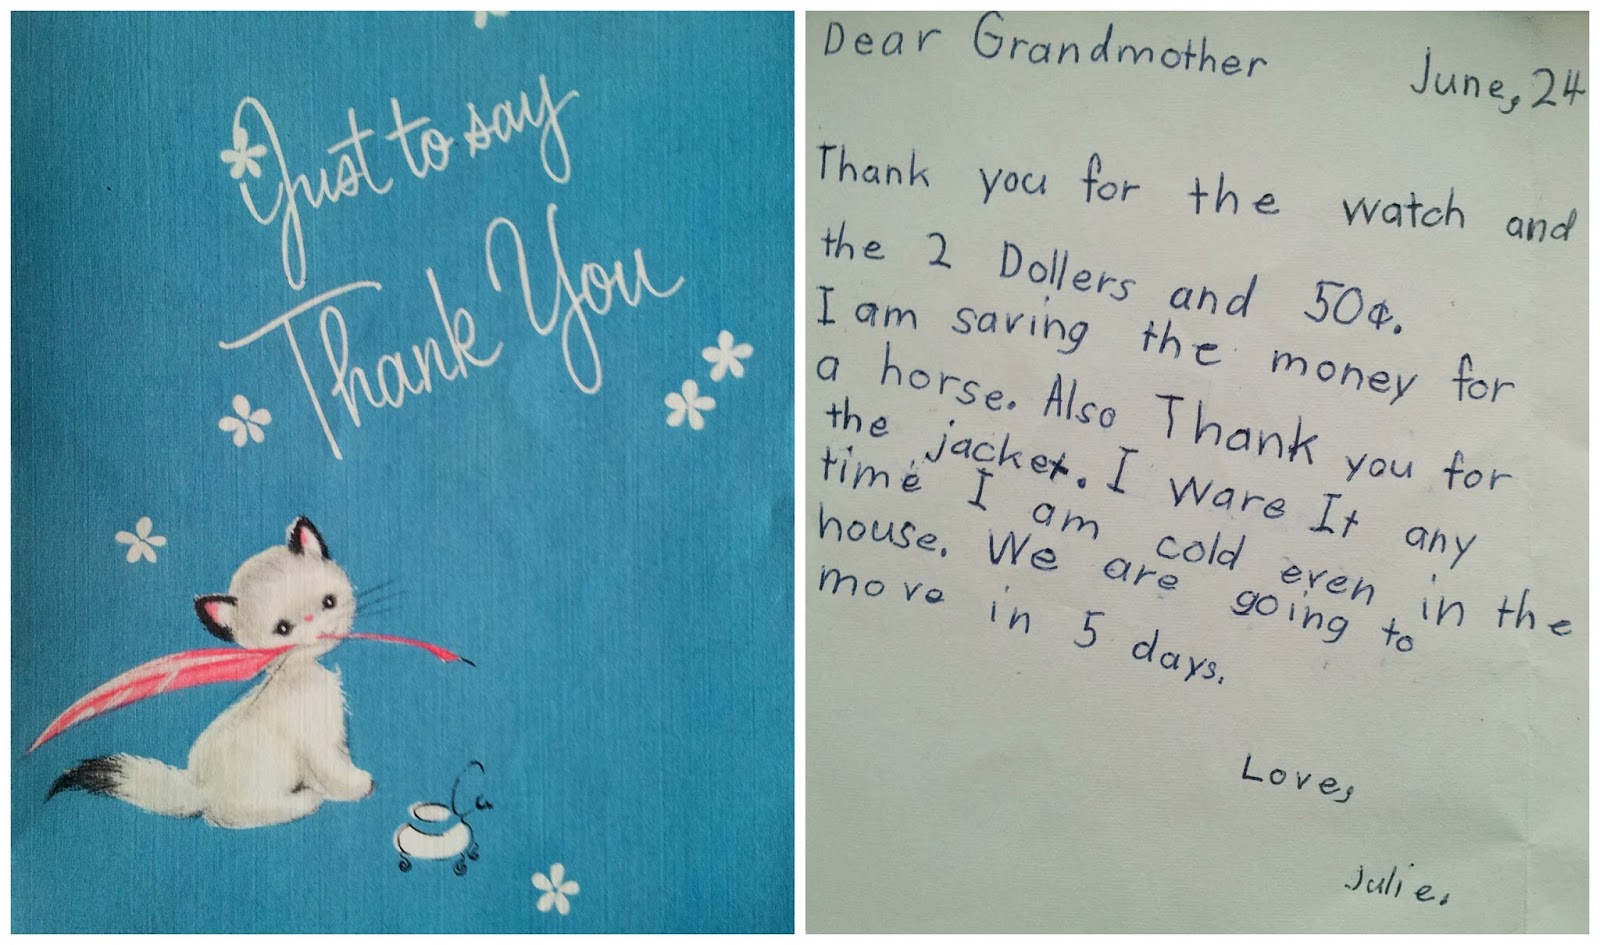 Just to say
Thank You
Dear Grandmother June, 24
Thank you for the watch and
the 2 Dollers and 50¢.
I am saving the money for
a horse. Also Thank you for
the jacket. I ware It any
time I am cold even in the
house. We are going to
move in 5 days.
Love,
Julie.